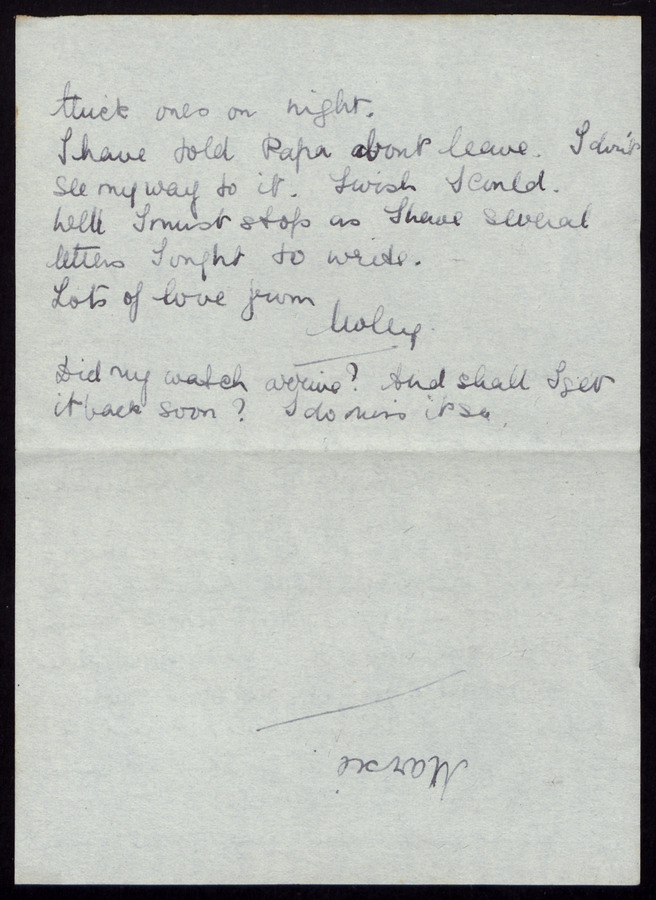 thick ones on night.
I have told Papa about leave. I don't
see my way to it. I wish I could.
Well I must stop as I have several
letters I ought to write.
Lots of love from
Molly.
Did my watch arrive? And shall I get
it back soon? I do miss it so.